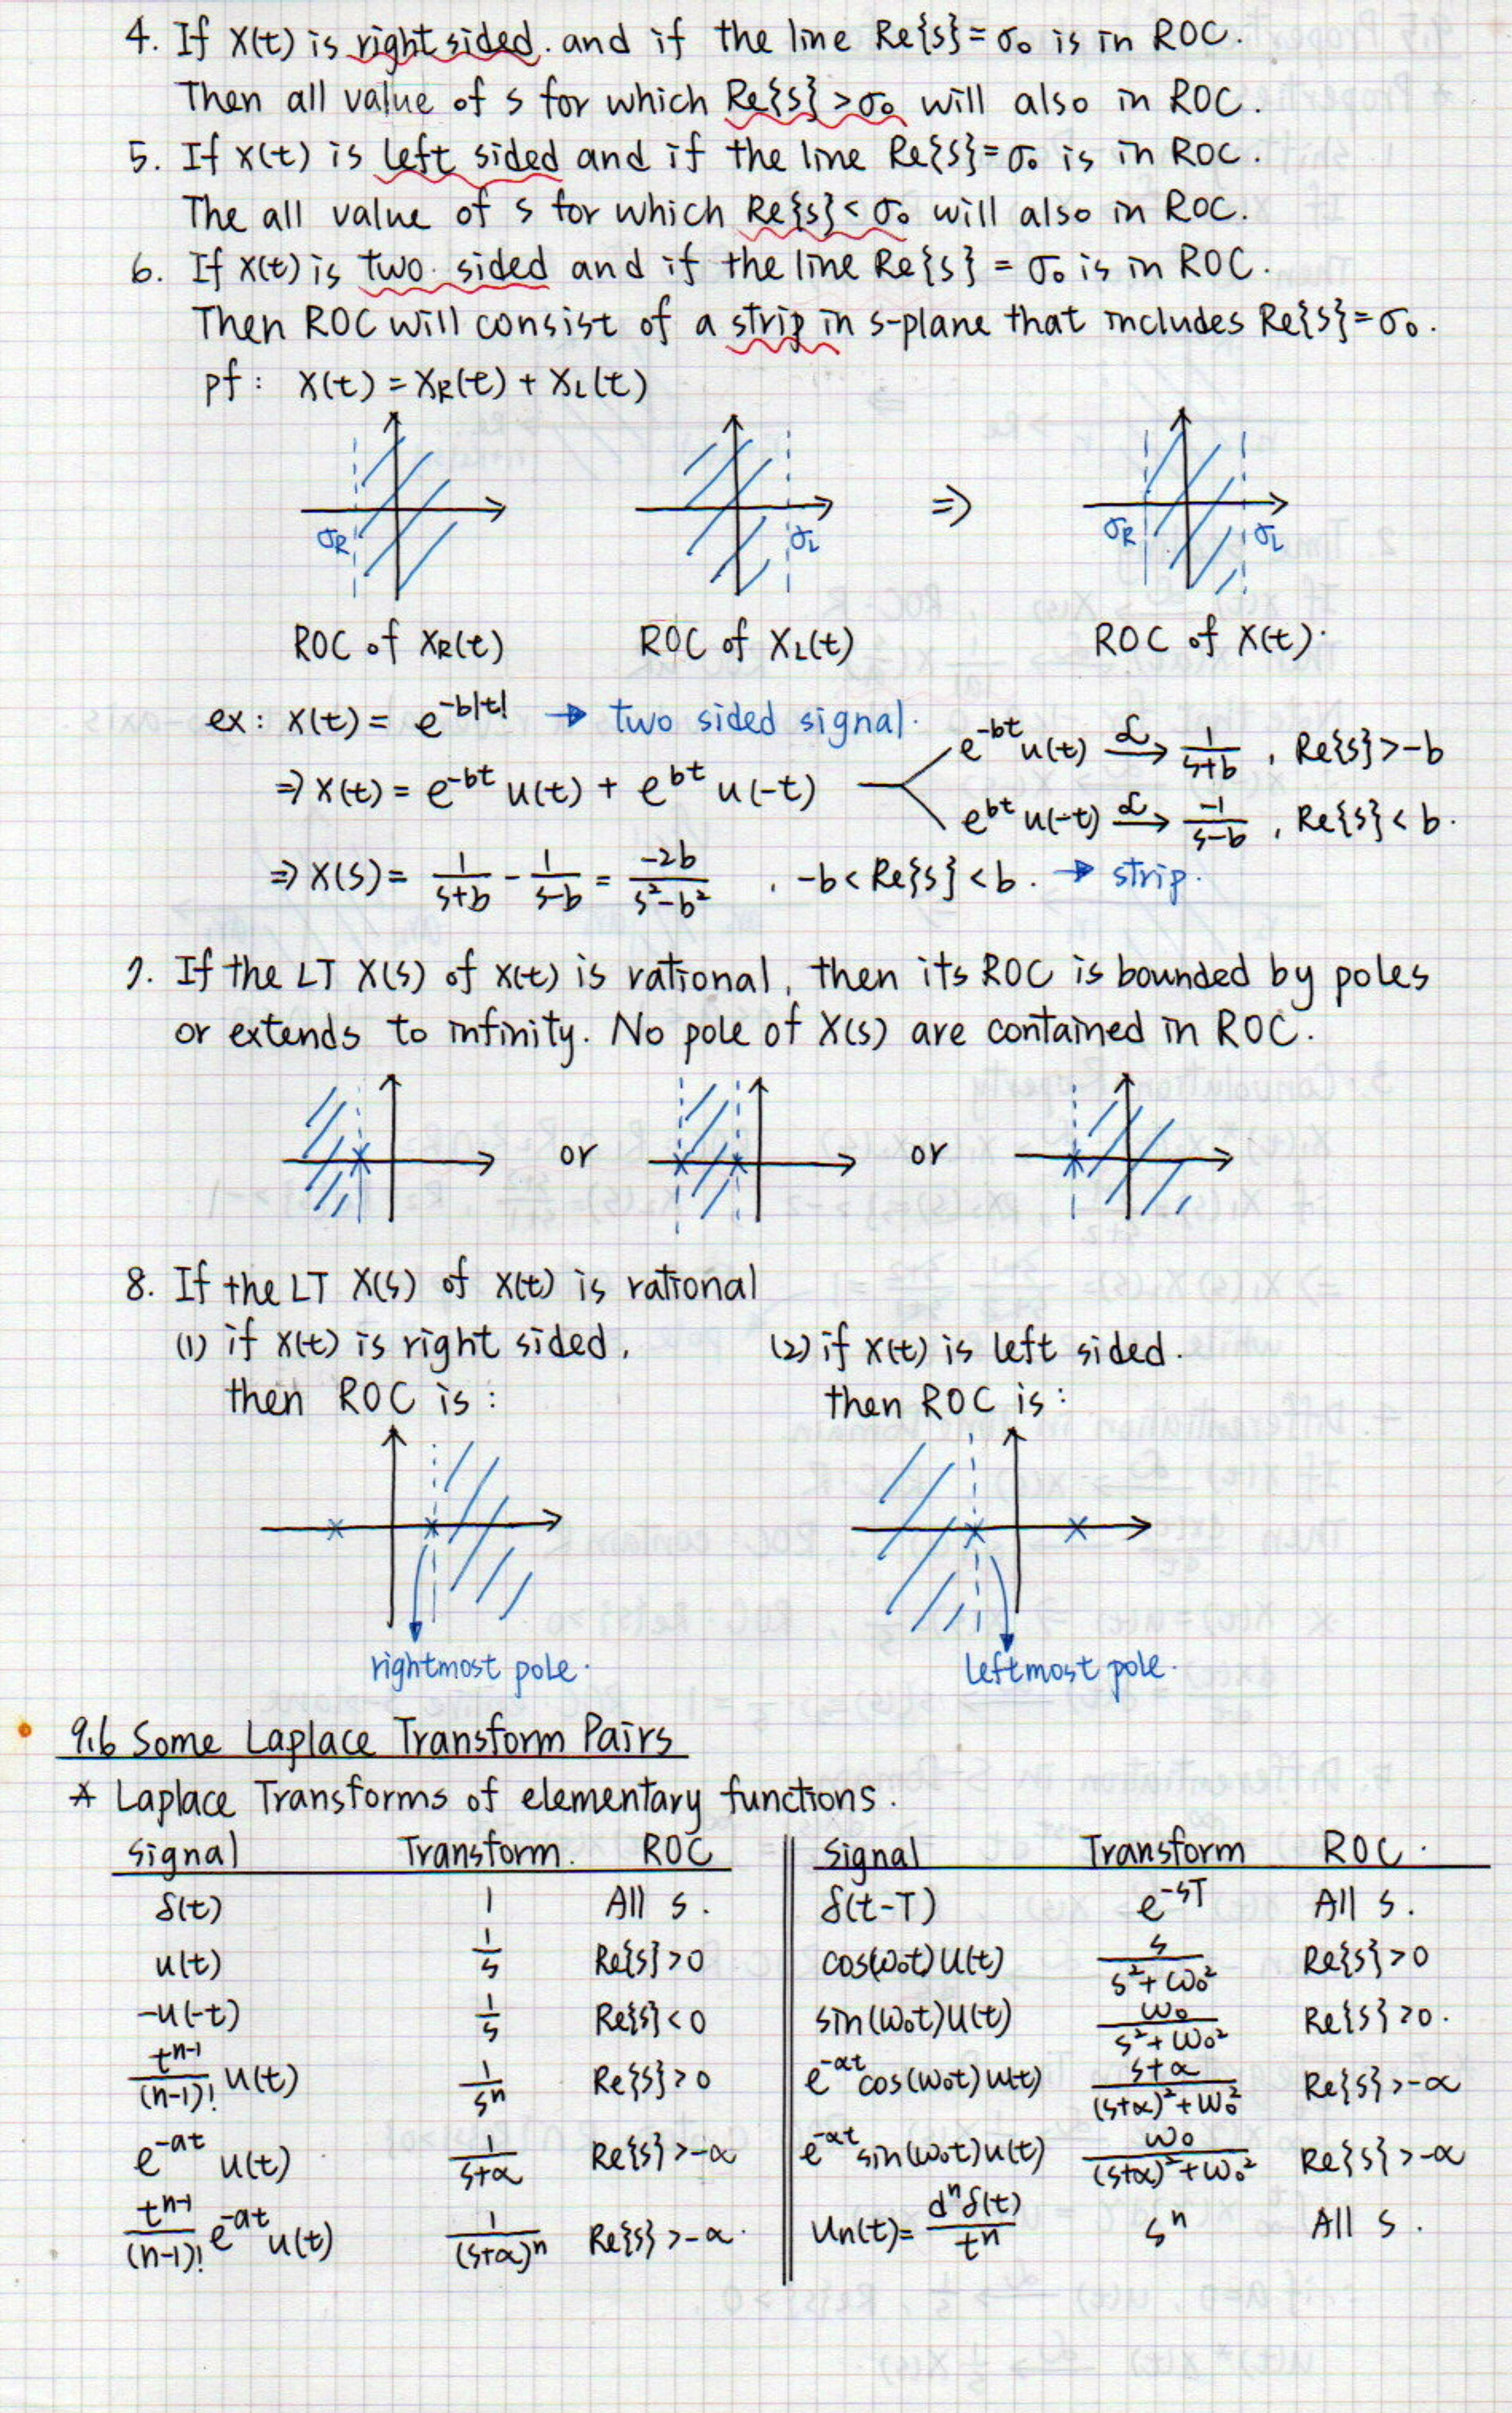 4. If X(t) is right sided. and if the line Re{s}=σ₀ is in ROC.
Then all value of s for which Re{s}>σ₀ will also in ROC.
5. If x(t) is left sided and if the line Re{s}=σ₀ is in ROC.
The all value of s for which Re{s}<σ₀ will also in ROC.
6. If x(t) is two sided and if the line Re{s} = σ₀ is in ROC.
Then ROC will consist of a strip in s-plane that includes Re{s}=σ₀.
pf: X(t) = X_R(t) + X_L(t)
σ_R σ_L ⇒ σ_R σ_L
ROC of X_R(t) ROC of X_L(t) ROC of X(t).
ex: X(t) = e^{-b|t|} → two sided signal.
e^{-bt}u(t) ℒ→ 1/(s+b), Re{s}>-b
⇒ X(t) = e^{-bt} u(t) + e^{bt} u(-t)
e^{bt}u(-t) ℒ→ -1/(s-b), Re{s}<b.
⇒ X(s) = 1/(s+b) - 1/(s-b) = -2b/(s²-b²), -b<Re{s}<b. → strip.
7. If the LT X(s) of x(t) is rational, then its ROC is bounded by poles
or extends to infinity. No pole of X(s) are contained in ROC.
or or
8. If the LT X(s) of x(t) is rational
(1) if x(t) is right sided, (2) if x(t) is left sided.
then ROC is: then ROC is:
rightmost pole. leftmost pole.
9.6 Some Laplace Transform Pairs
* Laplace Transforms of elementary functions.
Signal Transform. ROC Signal Transform ROC.
δ(t) 1 All s. δ(t-T) e^{-sT} All s.
u(t) 1/s Re{s}>0 cos(ω₀t)u(t) s/(s²+ω₀²) Re{s}>0
-u(-t) 1/s Re{s}<0 sin(ω₀t)u(t) ω₀/(s²+ω₀²) Re{s}>0.
t^{n-1}/(n-1)! u(t) 1/s^n Re{s}>0 e^{-αt}cos(ω₀t)u(t) (s+α)/((s+α)²+ω₀²) Re{s}>-α
e^{-at} u(t) 1/(s+α) Re{s}>-α e^{-αt}sin(ω₀t)u(t) ω₀/((s+α)²+ω₀²) Re{s}>-α
t^{n-1}/(n-1)! e^{-at}u(t) 1/(s+α)^n Re{s}>-α. u_n(t)= d^nδ(t)/t^n s^n All s.